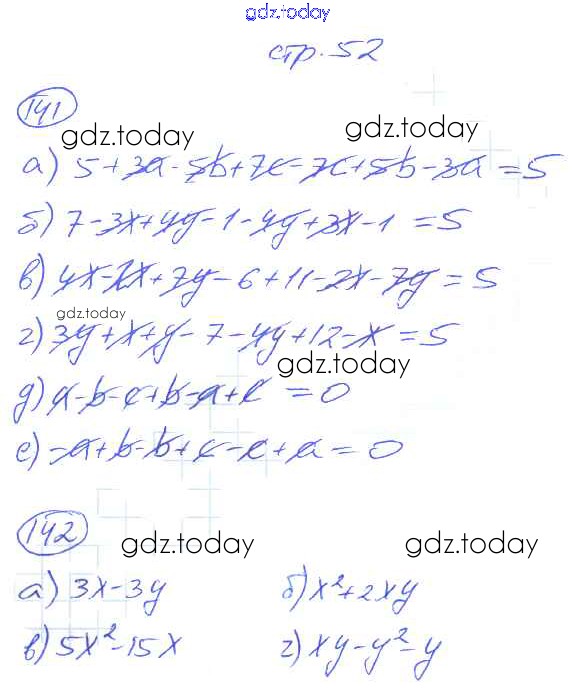 gdz.today
стр. 52
141
gdz.today gdz.today
а) 5+3a-5b+7c-7c+5b-3a=5
б) 7-3x+4y-1-4y+3x-1=5
в) 4x-2x+7y-6+11-2x-7y=5
gdz.today
г) 3y+x+y-7-4y+12-x=5
gdz.today
д) a-b-c+b-a+c=0
е) -a+b-b+c-c+a=0
142
gdz.today gdz.today
а) 3x-3y б) x²+2xy
в) 5x²-15x г) xy-y²-y